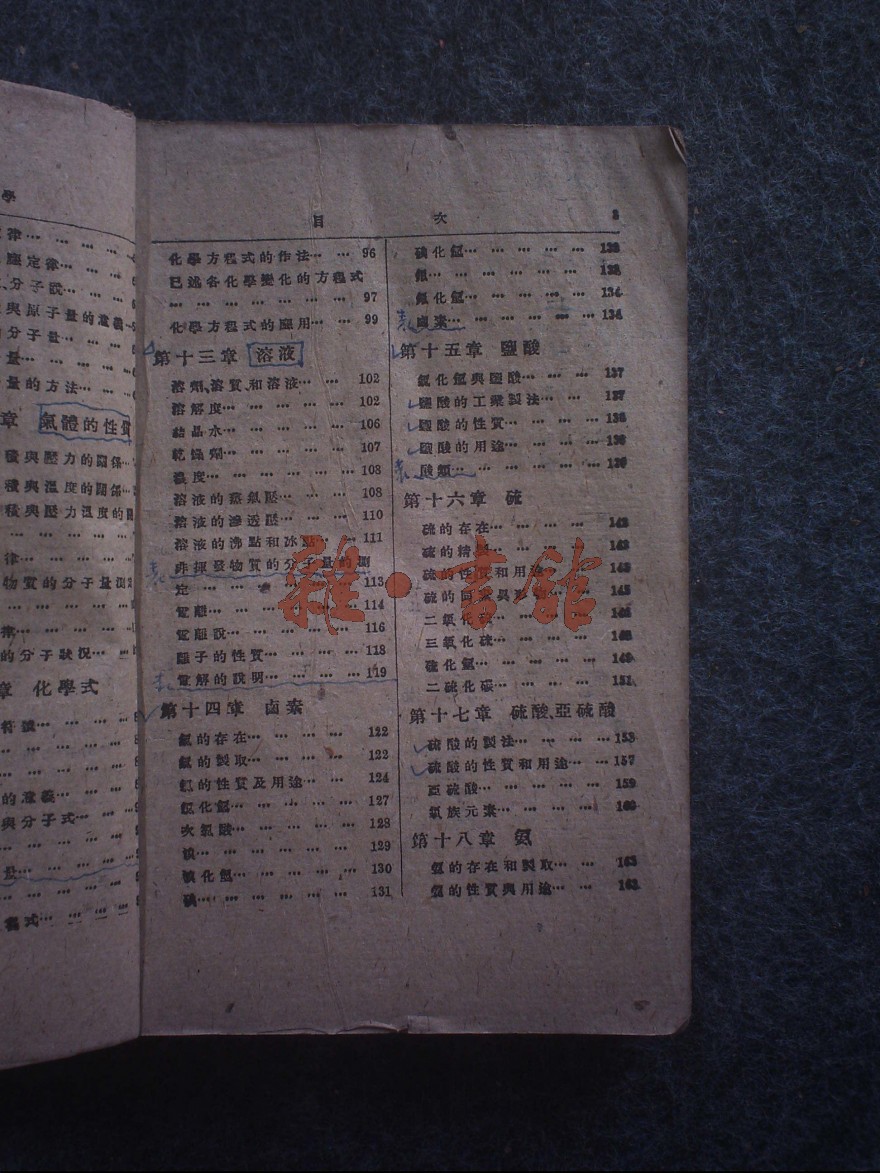 學
律… … … …
應定律… … …
分子說… … …
與原子量的意義…
分子量… … …
量… … …
量的方法… …
章 氣體的性質
積與壓力的關係…
積與溫度的關係…
積與壓力溫度的
… … … … …
律… … …
物質的分子量測
… … … …
律… … …
的分子狀況… …
章 化學式
符號… … …
… … … …
… … … …
的意義… … …
與分子式… … …
… … … …
量… … …
… … … …
… … … …
程式… … …
目 次 3
化學方程式的作法… … 96
已述各化學變化的方程式
… … … … … … … 97
化學方程式的應用… … 99
第十三章 溶液
溶劑、溶質、和溶液… … 102
溶解度… … … … … 102
結晶水… … … … … 106
乾燥劑… … … … … 107
濃度… … … … … … 108
溶液的蒸氣壓… … … 108
溶液的滲透壓… … … 110
溶液的沸點和冰點… … 111
非揮發物質的分子量的測
定… … … … … … 113
電離… … … … … … 114
電離說… … … … … 116
離子的性質… … … … 118
電解的說明… … … … 119
第十四章 鹵素
氯的存在… … … … 122
氯的製取… … … … 122
氯的性質及用途… … 124
氯化氫… … … … … 127
次氯酸… … … … … 128
溴… … … … … … 129
溴化氫… … … … … 130
碘… … … … … … 131
碘化氫… … … … …
氟… … … … … …
氟化氫… … … … … 134
鹵素… … … … … … 134
第十五章 鹽酸
氯化氫與鹽酸… … … 137
鹽酸的工業製法… … … 137
鹽酸的性質… … … …
鹽酸的用途… … … …
酸類… … … … … …
第十六章 硫
硫的存在… … … …
硫的精製… … … …
硫的性質和用途
硫的同素異形
二氧化硫… … … …
三氧化硫… … … …
硫化氫… … … … … 149
二硫化碳… … … … 151
第十七章 硫酸、亞硫酸
硫酸的製法… … … … 153
硫酸的性質和用途… … 157
亞硫酸… … … … … 159
氧族元素… … … … 160
第十八章 氨
氨的存在和製取… … … 163
氨的性質與用途… … 163
雜·書館